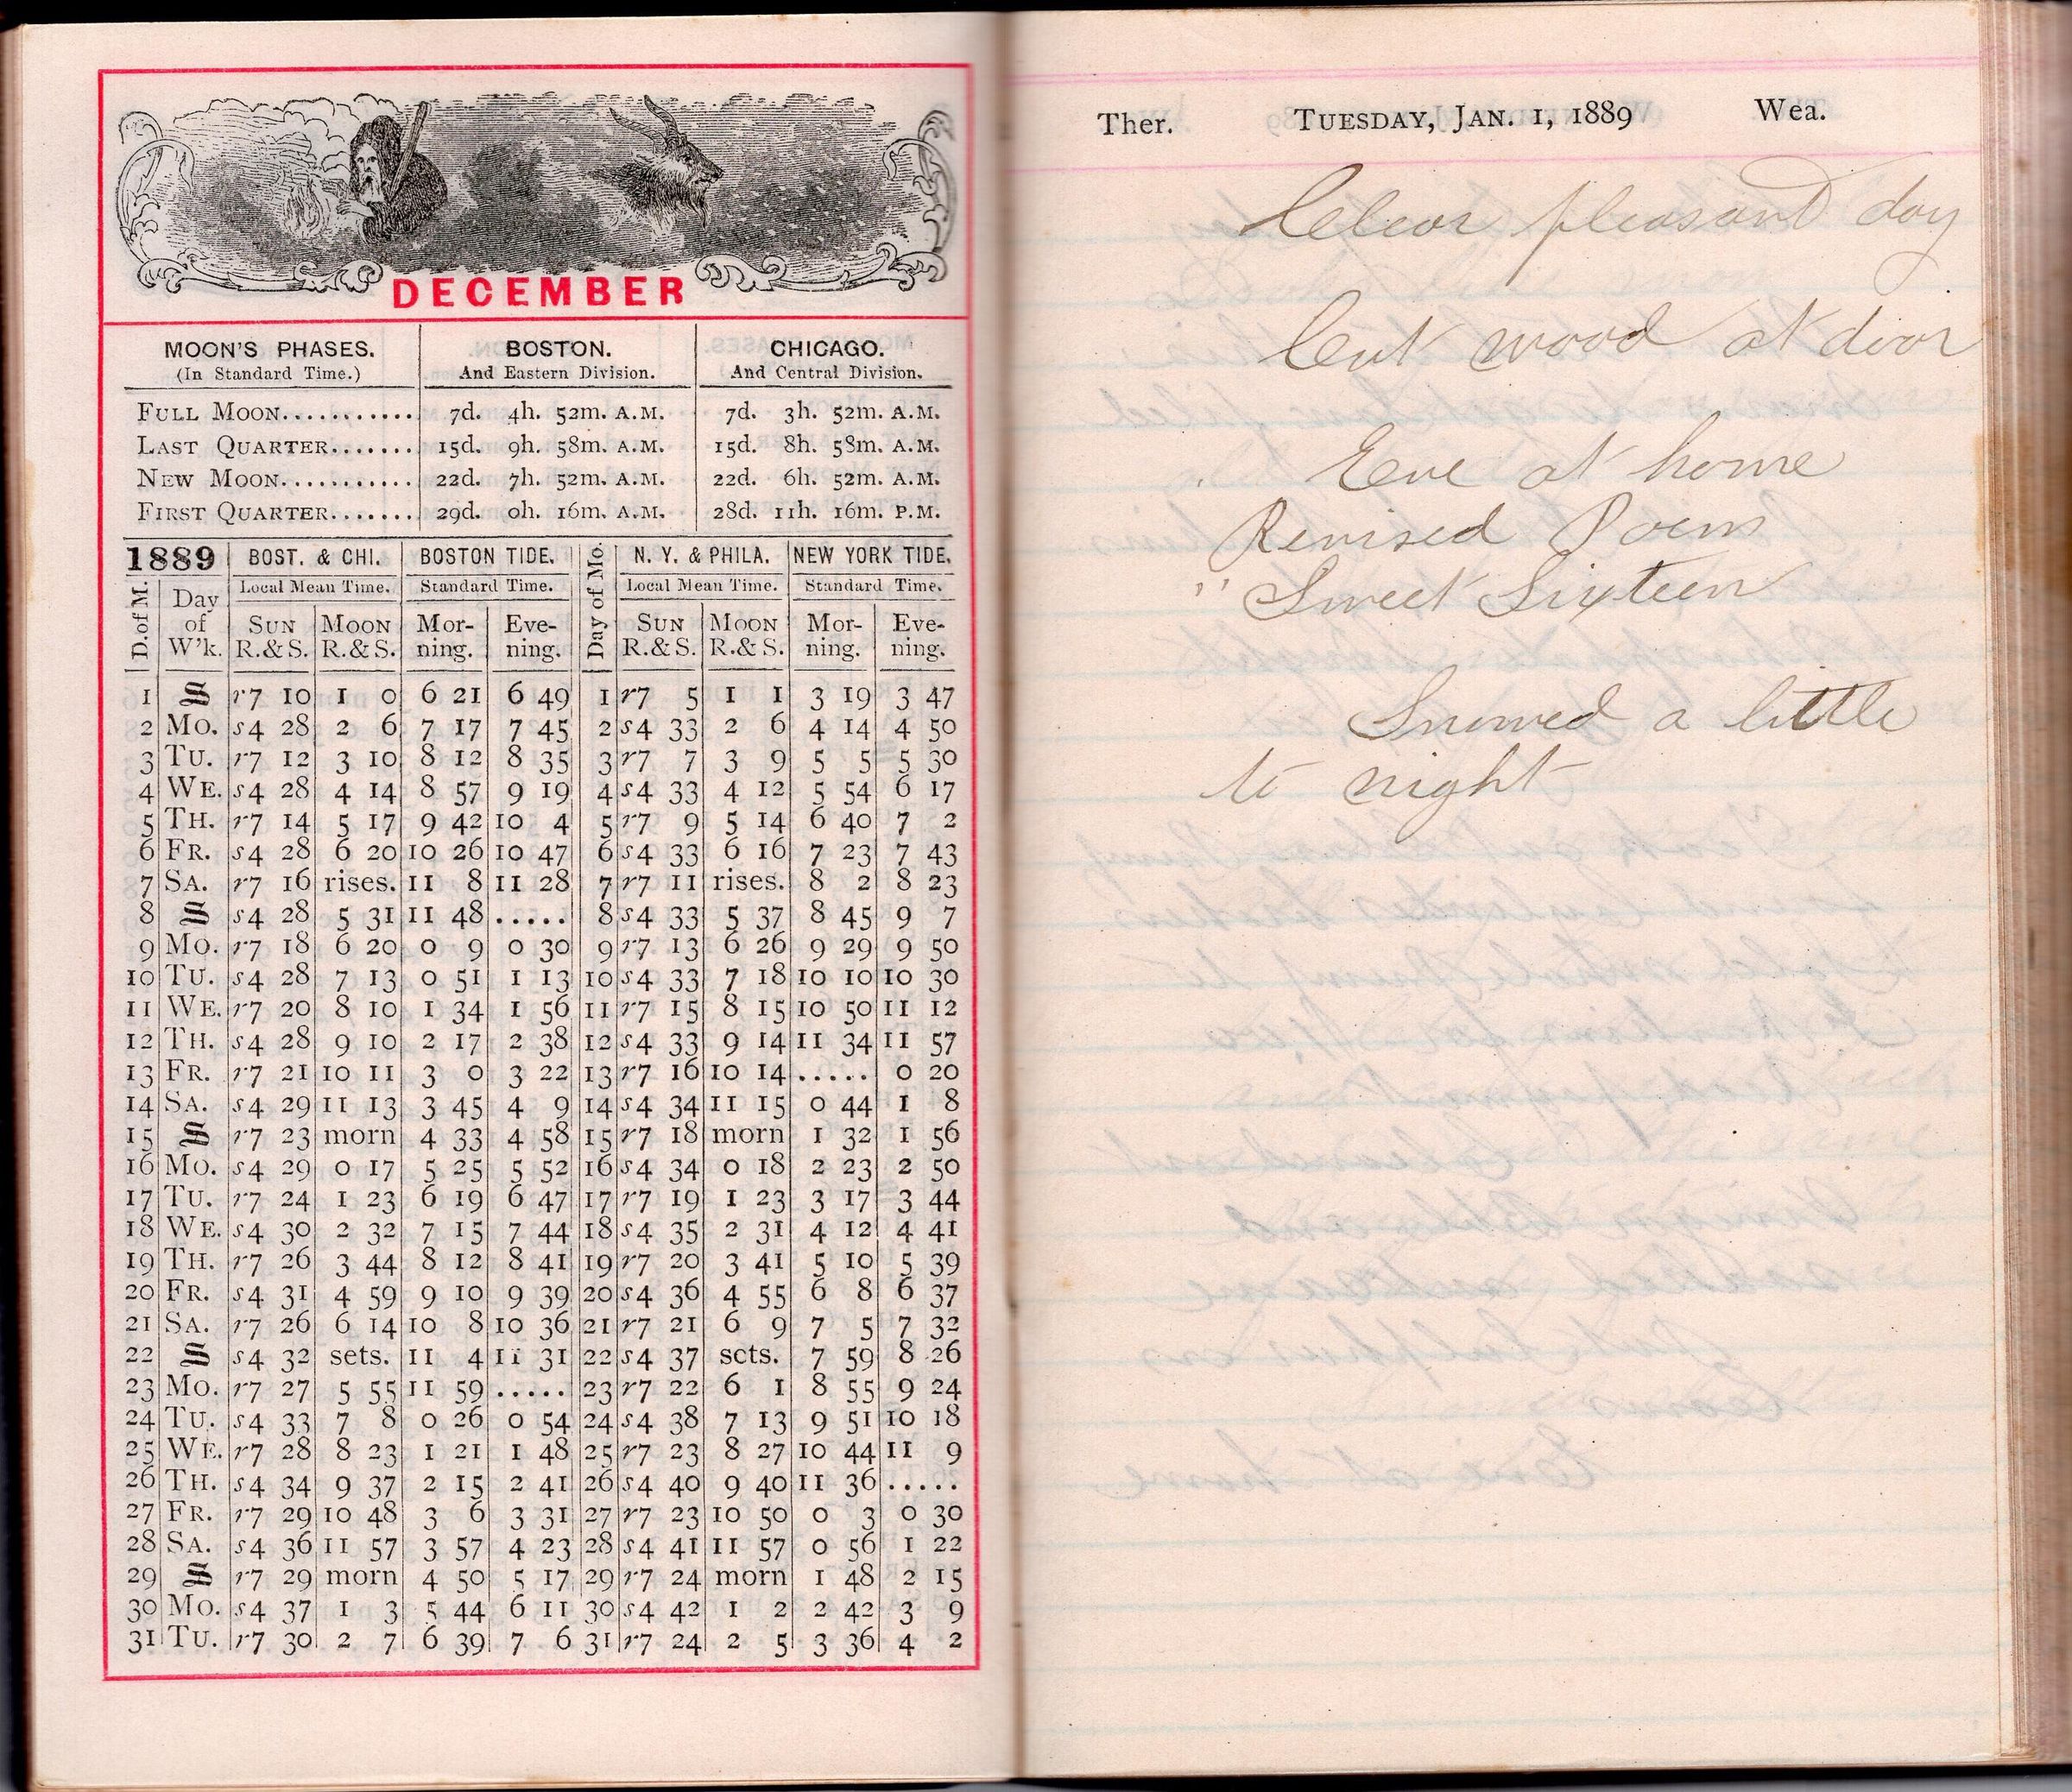 DECEMBER
MOON'S PHASES. BOSTON. CHICAGO.
(In Standard Time.) And Eastern Division. And Central Division.
FULL MOON........... 7d. 4h. 52m. A.M. 7d. 3h. 52m. A.M.
LAST QUARTER....... 15d. 9h. 58m. A.M. 15d. 8h. 58m. A.M.
NEW MOON........... 22d. 7h. 52m. A.M. 22d. 6h. 52m. A.M.
FIRST QUARTER....... 29d. 0h. 16m. A.M. 28d. 11h. 16m. P.M.
1889 BOST. & CHI. BOSTON TIDE. Day of Mo. N. Y. & PHILA. NEW YORK TIDE.
Local Mean Time. Standard Time. Local Mean Time. Standard Time.
D. of M. Day of W'k. SUN R.&S. MOON R.&S. Mor-ning. Eve-ning. SUN R.&S. MOON R.&S. Mor-ning. Eve-ning.
1 S r7 10 1 0 6 21 6 49 1 r7 5 1 1 3 19 3 47
2 MO. s4 28 2 6 7 17 7 45 2 s4 33 2 6 4 14 4 50
3 TU. r7 12 3 10 8 12 8 35 3 r7 7 3 9 5 5 5 30
4 WE. s4 28 4 14 8 57 9 19 4 s4 33 4 12 5 54 6 17
5 TH. r7 14 5 17 9 42 10 4 5 r7 9 5 14 6 40 7 2
6 FR. s4 28 6 20 10 26 10 47 6 s4 33 6 16 7 23 7 43
7 SA. r7 16 rises. 11 8 11 28 7 r7 11 rises. 8 2 8 23
8 S s4 28 5 31 11 48 ..... 8 s4 33 5 37 8 45 9 7
9 MO. r7 18 6 20 0 9 0 30 9 r7 13 6 26 9 29 9 50
10 TU. s4 28 7 13 0 51 1 13 10 s4 33 7 18 10 10 10 30
11 WE. r7 20 8 10 1 34 1 56 11 r7 15 8 15 10 50 11 12
12 TH. s4 28 9 10 2 17 2 38 12 s4 33 9 14 11 34 11 57
13 FR. r7 21 10 11 3 0 3 22 13 r7 16 10 14 ..... 0 20
14 SA. s4 29 11 13 3 45 4 9 14 s4 34 11 15 0 44 1 8
15 S r7 23 morn 4 33 4 58 15 r7 18 morn 1 32 1 56
16 MO. s4 29 0 17 5 25 5 52 16 s4 34 0 18 2 23 2 50
17 TU. r7 24 1 23 6 19 6 47 17 r7 19 1 23 3 17 3 44
18 WE. s4 30 2 32 7 15 7 44 18 s4 35 2 31 4 12 4 41
19 TH. r7 26 3 44 8 12 8 41 19 r7 20 3 41 5 10 5 39
20 FR. s4 31 4 59 9 10 9 39 20 s4 36 4 55 6 8 6 37
21 SA. r7 26 6 14 10 8 10 36 21 r7 21 6 9 7 5 7 32
22 S s4 32 sets. 11 4 11 31 22 s4 37 sets. 7 59 8 26
23 MO. r7 27 5 55 11 59 ..... 23 r7 22 6 1 8 55 9 24
24 TU. s4 33 7 8 0 26 0 54 24 s4 38 7 13 9 51 10 18
25 WE. r7 28 8 23 1 21 1 48 25 r7 23 8 27 10 44 11 9
26 TH. s4 34 9 37 2 15 2 41 26 s4 40 9 40 11 36 .....
27 FR. r7 29 10 48 3 6 3 31 27 r7 23 10 50 0 3 0 30
28 SA. s4 36 11 57 3 57 4 23 28 s4 41 11 57 0 56 1 22
29 S r7 29 morn 4 50 5 17 29 r7 24 morn 1 48 2 15
30 MO. s4 37 1 3 5 44 6 11 30 s4 42 1 2 2 42 3 9
31 TU. r7 30 2 7 6 39 7 6 31 r7 24 2 5 3 36 4 2
Ther. TUESDAY, JAN. 1, 1889 Wea.
Clear pleasant day
Cut wood at door
Eve at home
Revised Poem
"Sweet Sixteen
Snowed a little
to night